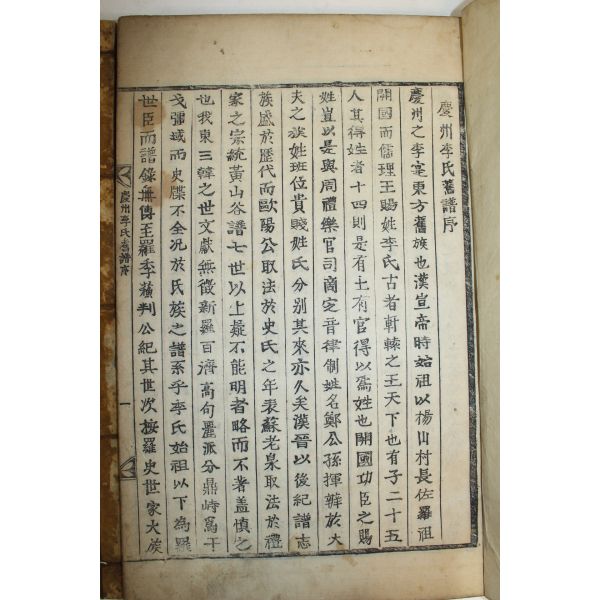 慶州李氏舊譜序
慶州之李寔東方舊族也漢宣帝時始祖以楊山村長佐羅祖
開國而儒理王賜姓李氏古者軒轅之王天下也有子二十五
人其得姓者十四則是有土有官得以為姓也開國功臣之賜
姓豈以是與周禮樂官司商定音律制姓名鄭公孫揮辨於大
夫之族姓班位貴賤姓氏分別其來亦久矣漢晉以後紀譜志
族盛於歷代而歐陽公取法於史氏之年表蘇老泉取法於禮
家之宗統黃山谷譜七世以上疑不能明者略而不著盖慎之
也我東三韓之世文獻無徵新羅百濟高句麗派分鼎峙為干
戈彊域而史牒不全况於氏族之譜系乎李氏始祖以下為羅
世臣而譜錄無傳王羅季蘇判公紀其世次按羅史世家大族
慶州李氏舊譜序
一